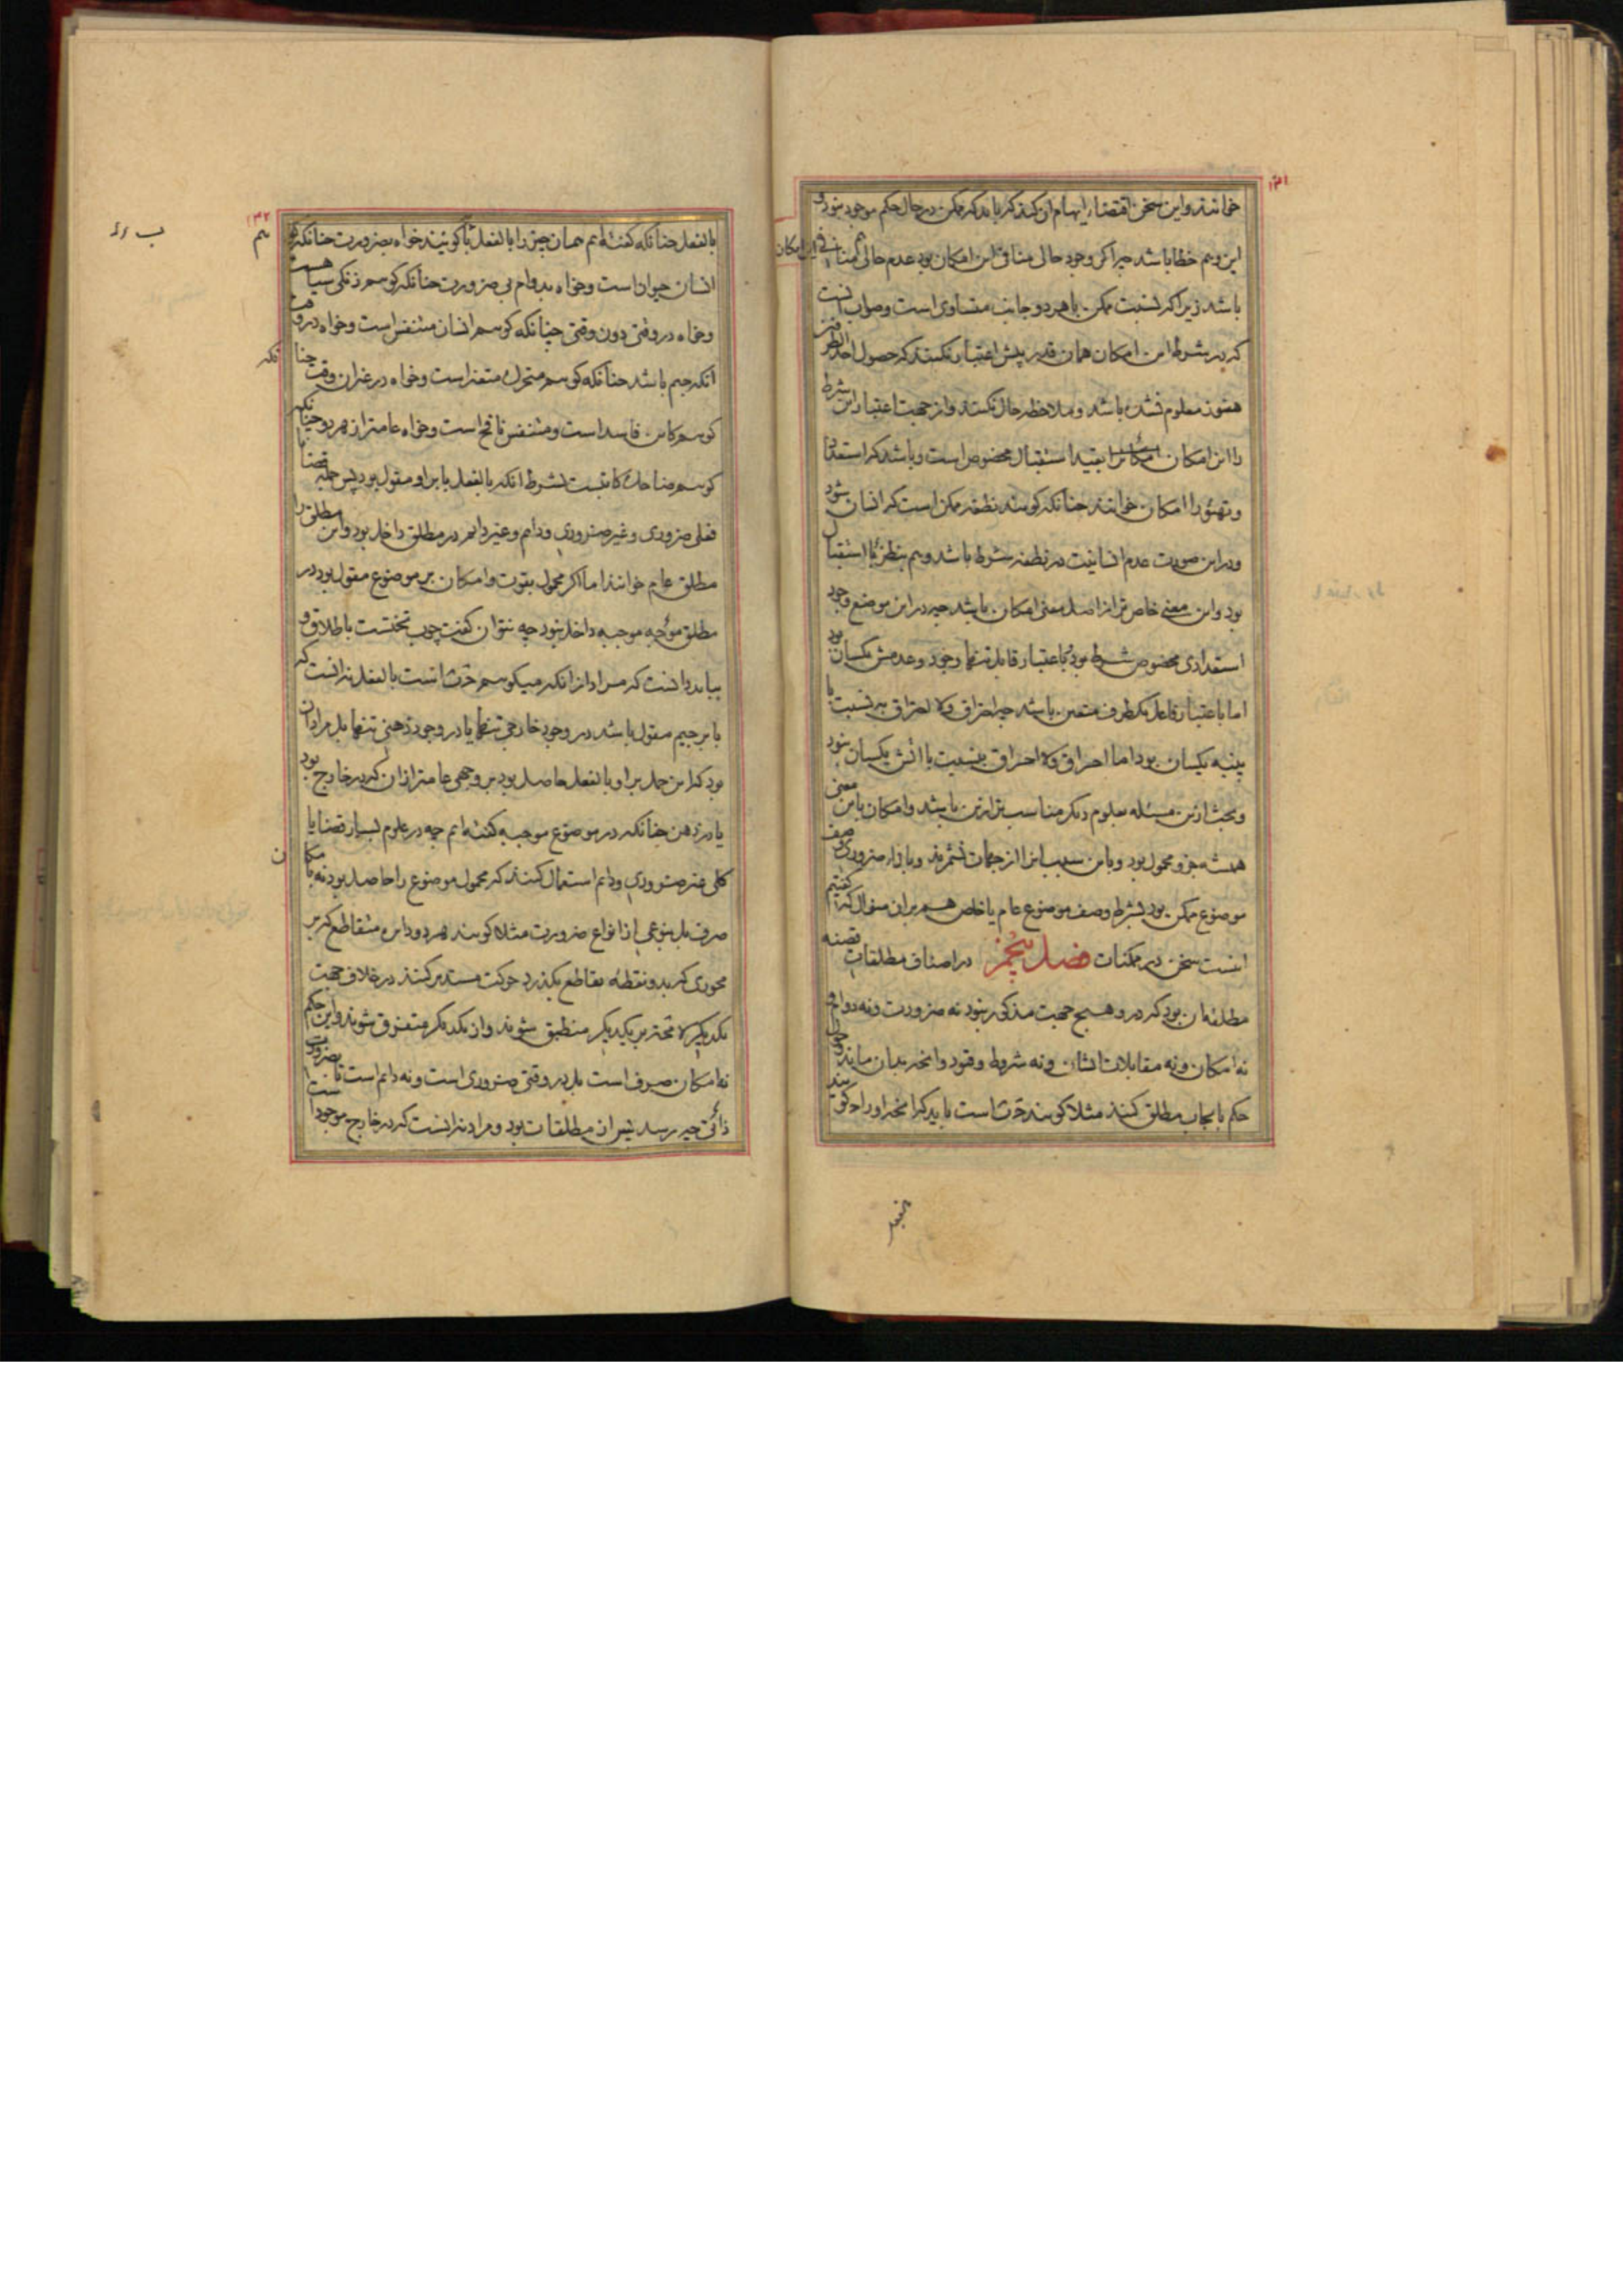 ۱۳۱
خوانند و این سخن اقتضاء ایهام آن کند که باید که ممکن در حال حکم موجود نبود و
این وهم خطا باشد چه اگر وجود حالی منافی این امکان بود عدم حالی هم منافی این امکان
باشد زیرا که نسبت ممکن با هر دو جانب متساوی است و صواب آنست
که در شرط این امکان همان قدر بیش اعتبار نکنند که حصول احد الطرفین
هنوز معلوم نشده باشد و ملاحظه حال نکنند و از جهت اعتبار این شرط
را این امکان بقید استقبال مخصوص است و باشد که استعداد
و تهیؤ را امکان خوانند چنانکه گویند نطفه ممکن است که انسان شود
و در این صورت عدم انسانیت در نطفه شرط باشد و هم بنظر با استقبال
بود و این معنی خاص‌تر از اصل معنی امکان باشد چه در این موضع وجود
استعدادی مخصوص شرط بود با اعتبار قابل تنها وجود و عدمش یکسان بود
اما باعتبار فاعل یک طرف متعین باشد چه احتراق و لا احتراق به نسبت با
پنبه یکسان بود اما احراق و لا احراق بنسبت با آتش یکسان نبود
و بحث ازین مسئله بعلوم دیگر مناسب‌تر ازین باشد و امکان باین معنی
همیشه جزو محمول بود و باین سبب این را از جهات نشمرند و بازاء ضروری وصف
موضوع ممکن بود بشرط وصف موضوع عام یا خاص هم بران منوال که گفتیم
اینست سخن در ممکنات فصل پنجم در اصناف مطلقات قضیه
مطلقه آن بود که درو هیچ جهت مذکور نبود نه ضرورت و نه دوام و
نه امکان و نه مقابلات ایشان و نه شروط و قیود و آنچه بدان ماند و چون
حکم بایجاب مطلق کنند مثلا گویند ج ب است باید که آنچه او را ج گویند
۱۳۲
بالفعل چنانکه گفته‌ایم همان چیز را بالفعل ب گویند خواه بضرورت چنانکه گوئیم
انسان حیوان است و خواه بدوام بی ضرورت چنانکه گوییم زنگی سیاهست
و خواه در وقتی دون وقتی چنانکه گوییم انسان متنفس است و خواه در وقت
آنکه جیم باشد چنانکه گوییم متحرک متغیر است و خواه در غیر آن وقت چنانکه
گوییم کاین فاسد است و متنفس نافخ است و خواه عام‌تر از هر دو چنانکه
گوییم ضاحک کاتبست بشرط آنکه بالفعل با بر او مقول بود پس جمله قضایا
فعلی ضروری و غیر ضروری و دایم و غیر دایم در مطلق داخل بود و این مطلق را
مطلق عام خوانند اما اگر محمول بقوت و امکان بر موضوع مقول بود در
مطلق موجه موجبه داخل نبود چه نتوان گفت چوب تختست باطلاق و
بباید دانست که مراد از آنکه میگوییم ج ب است بالفعل نه آنست که
با بر جیم مقول باشد در وجود خارجی تنها یا در وجود ذهنی تنها بل مراد آن
بود که این حمل بر او بالفعل حاصل بود بر وجهی عام‌تر از آن که در خارج بود
یا در ذهن چنانکه در موضوع موجبه گفته‌ایم چه در علوم بسیار قضایا
کلی غیر ضروری و دایم استعمال کنند که محمول موضوع را حاصل بود نه بامکان
صرف بل بنوعی از انواع ضرورت مثلا گویند هر دو دایره متقاطع که بر
محوری که بدو نقطه تقاطع بگذرد حرکت مستدیر کنند در خلاف جهت
یکدیگر لا محاله بر یکدیگر منطبق شوند و از یکدیگر متفرق شوند و این حکم
نه امکان صرف است بل در وقتی ضروری است و نه دایم است تا بضرورت
ذاتی چه رسد پس از مطلقات بود و مراد نه آنست که در خارج موجود است